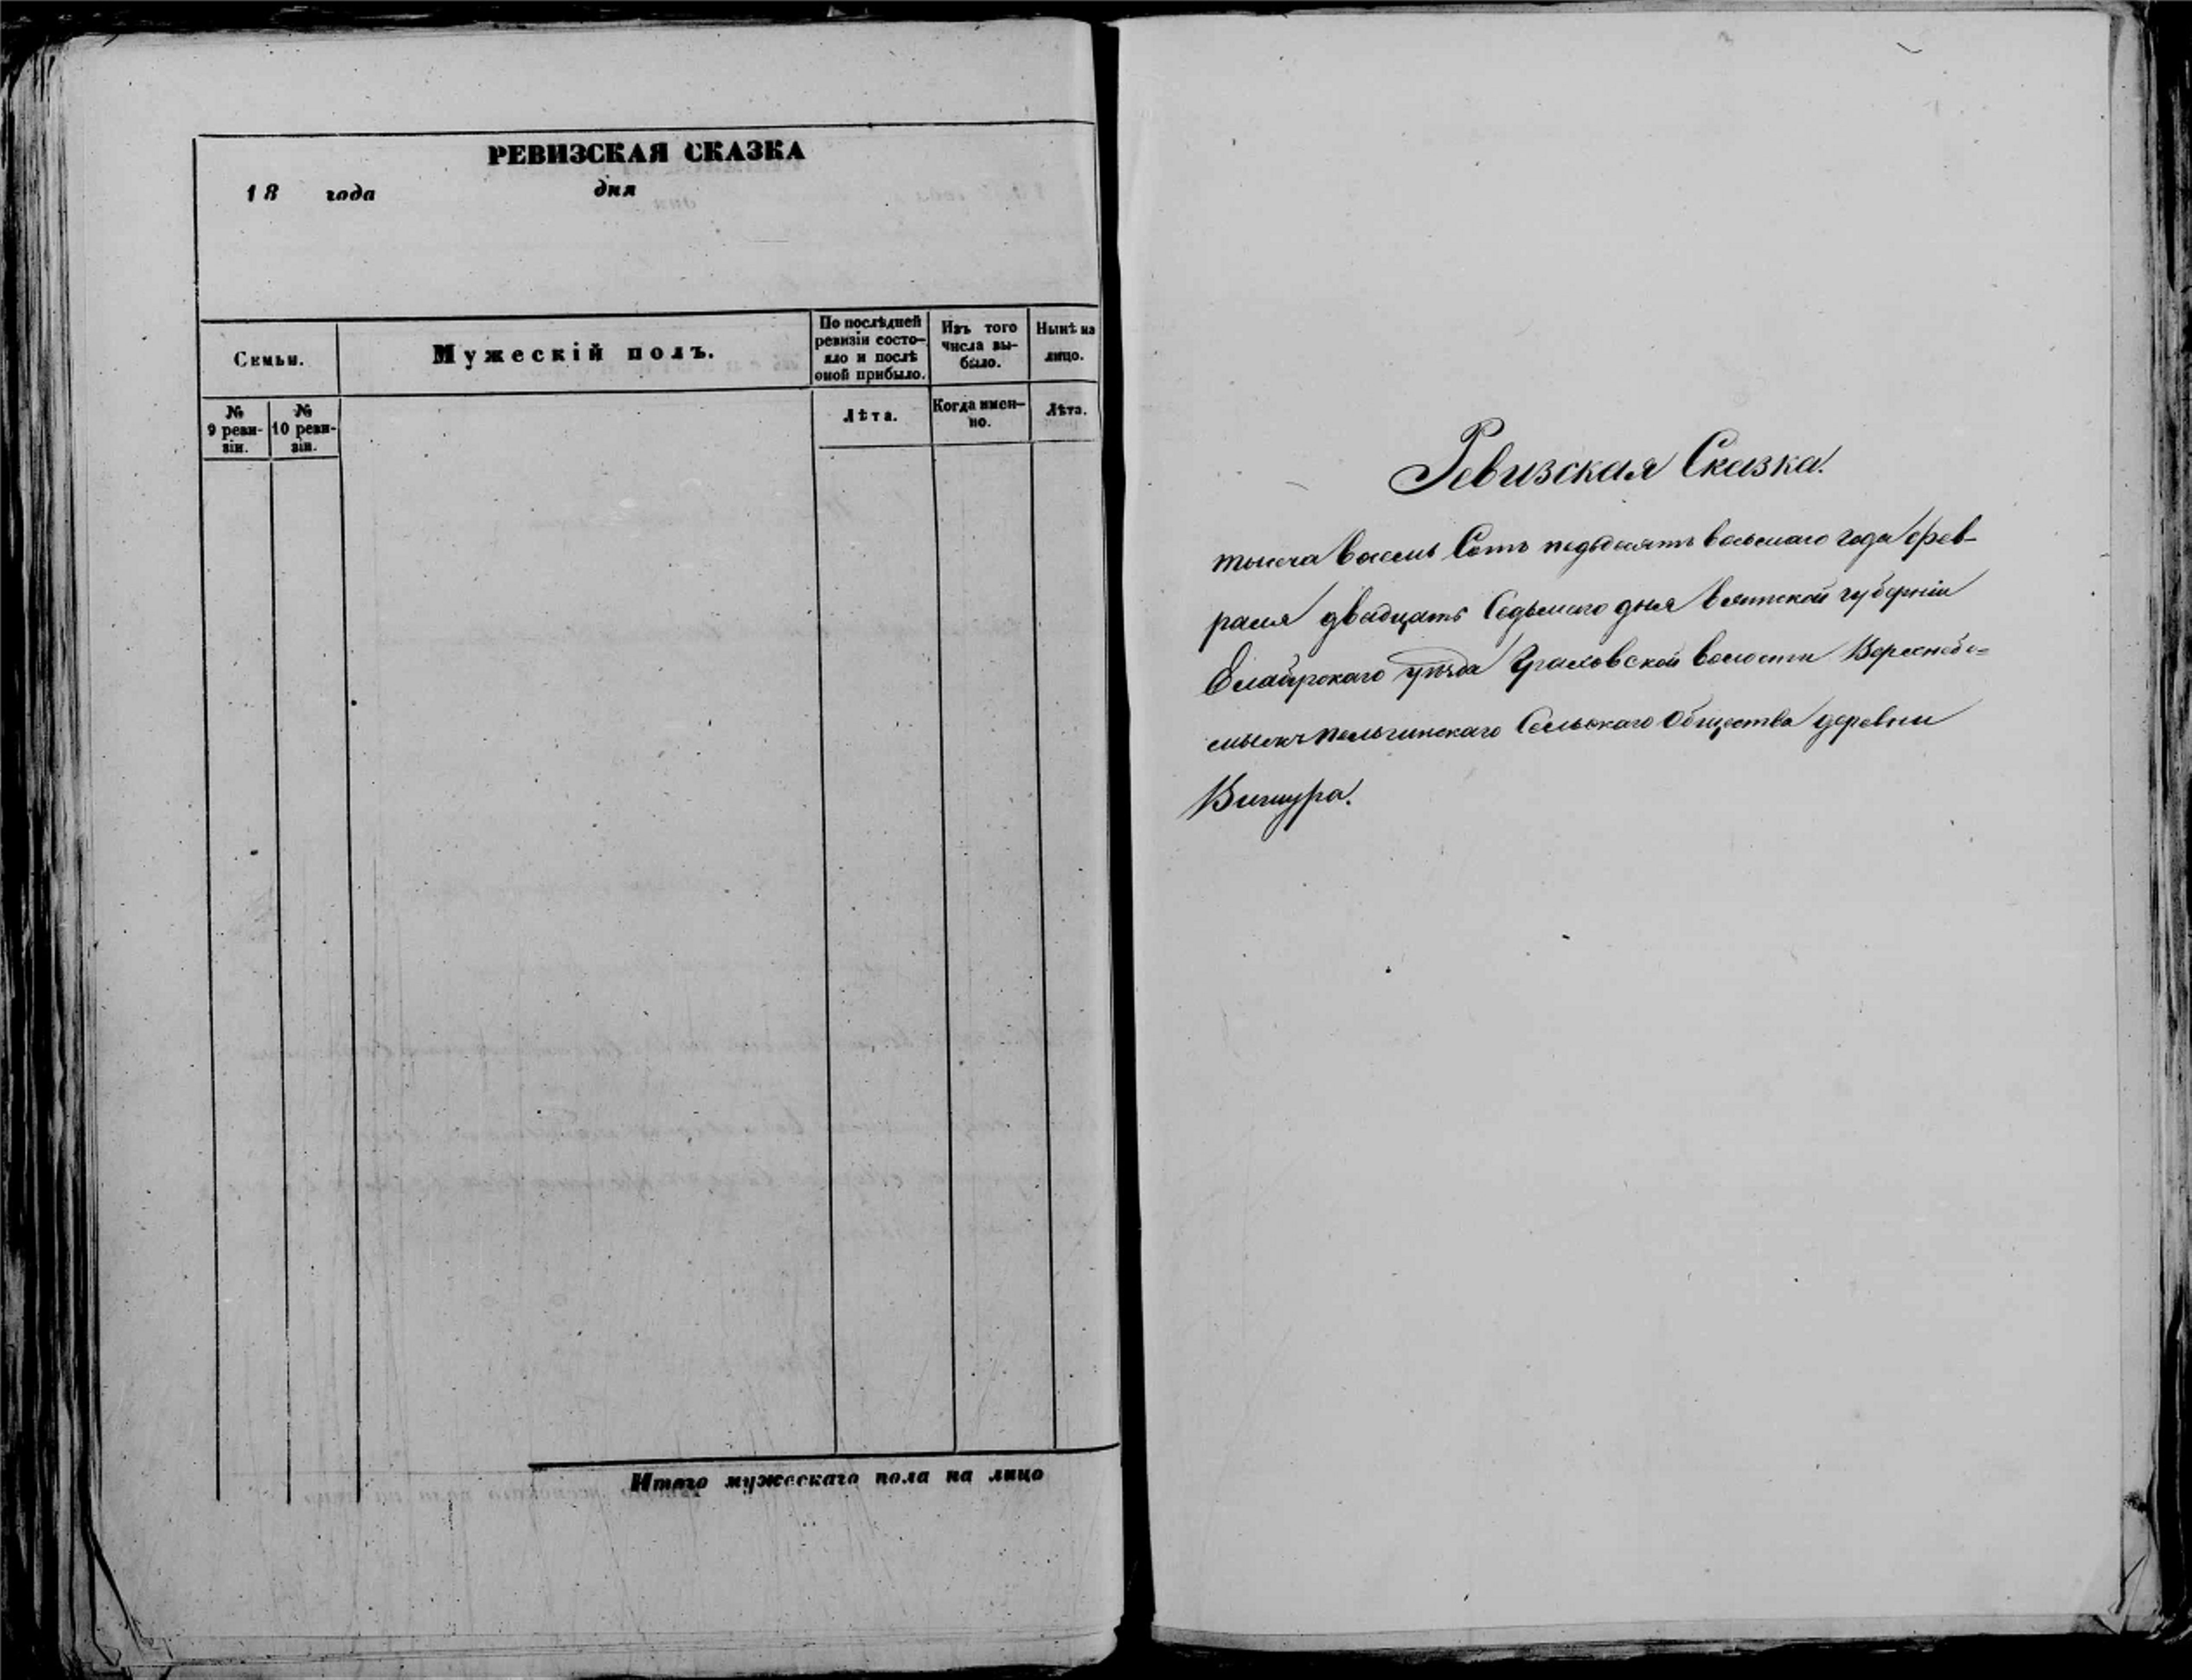 РЕВИЗСКАЯ СКАЗКА
18 года дня
Семьи.
Мужескій полъ.
По послѣдней ревизіи состо-
яло и послѣ оной прибыло.
Изъ того числа вы-
было.
Нынѣ на лицо.
№ 9 реви-
зіи.
№ 10 реви-
зіи.
Лѣта.
Когда имен-
но.
Лѣта.
Итого мужескаго пола на лицо
Ревизская Сказка.
тысеча восемь Сотъ педьдесятъ восьмаго года фев-
раля двадцать Седьмаго дня вятской губерніи
Елабускаго уѣзда Граховской волости Верхнебе=
мыжъ Сельскаго Общества деревни